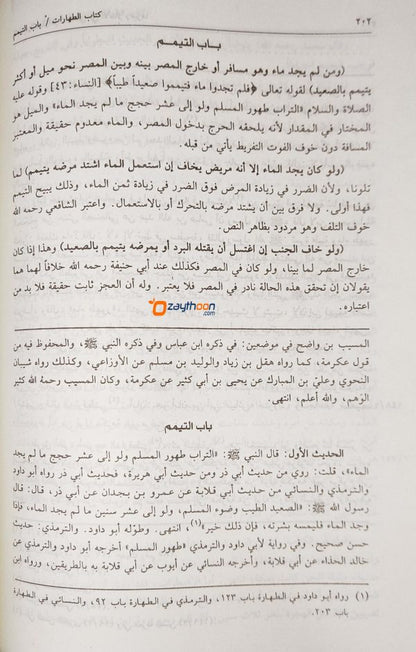 ٢٠٢
كتاب الطهارات / باب التيمم
باب التيمم
(ومن لم يجد ماء وهو مسافر أو خارج المصر بينه وبين المصر نحو ميل أو أكثر
يتيمم بالصعيد) لقوله تعالى ﴿فلم تجدوا ماء فتيمموا صعيداً طيباً﴾ [النساء: ٤٣] وقوله عليه
الصلاة والسلام «التراب طهور المسلم ولو إلى عشر حجج ما لم يجد الماء» والميل هو
المختار في المقدار لأنه يلحقه الحرج بدخول المصر، والماء معدوم حقيقة والمعتبر
المسافة دون خوف الفوت لأن التفريط يأتي من قبله.
(ولو كان يجد الماء إلا أنه مريض يخاف إن استعمل الماء اشتد مرضه يتيمم) لما
تلونا، ولأن الضرر في زيادة المرض فوق الضرر في زيادة ثمن الماء، وذلك يبيح التيمم
فهذا أولى. ولا فرق بين أن يشتد مرضه بالتحرك أو بالاستعمال. واعتبر الشافعي رحمه الله
خوف التلف وهو مردود بظاهر النص.
(ولو خاف الجنب إن اغتسل أن يقتله البرد أو يمرضه يتيمم بالصعيد) وهذا إذا كان
خارج المصر لما بينا، ولو كان في المصر فكذلك عند أبي حنيفة رحمه الله خلافاً لهما هما
يقولان إن تحقق هذه الحالة نادر في المصر فلا يعتبر. وله أن العجز ثابت حقيقة فلا بد من
اعتباره.
zaythoon.com
المسيب بن واضح في موضعين: في ذكره ابن عباس وفي ذكره النبي ﷺ، والمحفوظ فيه من
قول عكرمة، كما رواه هقل بن زياد والوليد بن مسلم عن الأوزاعي، وكذلك رواه شيبان
النحوي وعلي بن المبارك عن يحيى بن أبي كثير عن عكرمة، وكان المسيب رحمه الله كثير
الوهم، والله أعلم، انتهى.
باب التيمم
الحديث الأول: قال النبي ﷺ: «التراب طهور المسلم ولو إلى عشر حجج ما لم يجد
الماء»، قلت: روي من حديث أبي ذر ومن حديث أبي هريرة، فحديث أبي ذر رواه أبو داود
والترمذي والنسائي من حديث أبي قلابة عن عمرو بن بجدان عن أبي ذر، قال: قال
رسول الله ﷺ: «الصعيد الطيب وضوء المسلم، ولو إلى عشر سنين ما لم يجد الماء، فإذا
وجد الماء فليمسه بشرته، فإن ذلك خير»(١)، انتهى. وطوّله أبو داود. والترمذي: حديث
حسن صحيح. وفي رواية لأبي داود والترمذي «طهور المسلم» أخرجه أبو داود والترمذي عن
خالد الحذاء عن أبي قلابة، وأخرجه النسائي عن أيوب عن أبي قلابة به بالطريقين، ورواه ابن
(١) رواه أبو داود في الطهارة باب ١٢٣، والترمذي في الطهارة باب ٩٢، والنسائي في الطهارة
باب ٢٠٣.